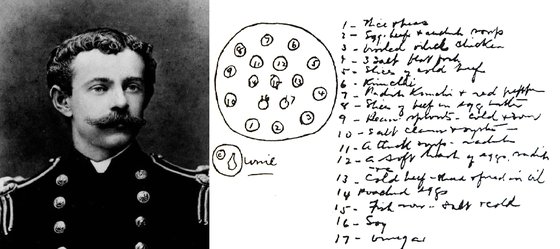 7
8
6
9
11
12
5
10
16
17
4
1
2
3
1 - Rice & beans
2 - Egg, beef & radish soup
3 - Broiled whole chicken
4 - 3 salt
5 - Slices of cold beef
6 - Kimchi
7 - Radish Kimchi & red pepper
8 - Slices of beef in egg batter
9 - Bean sprouts - cold & sour
10 - Salt clams & oysters
11 - A thick soup - radish
12 - a soft hash of eggs, radish
13 - Cold beef - fried in oil
14 Poached eggs
15 - Fish - salt & cold
16 - Soy
17 - Vinegar